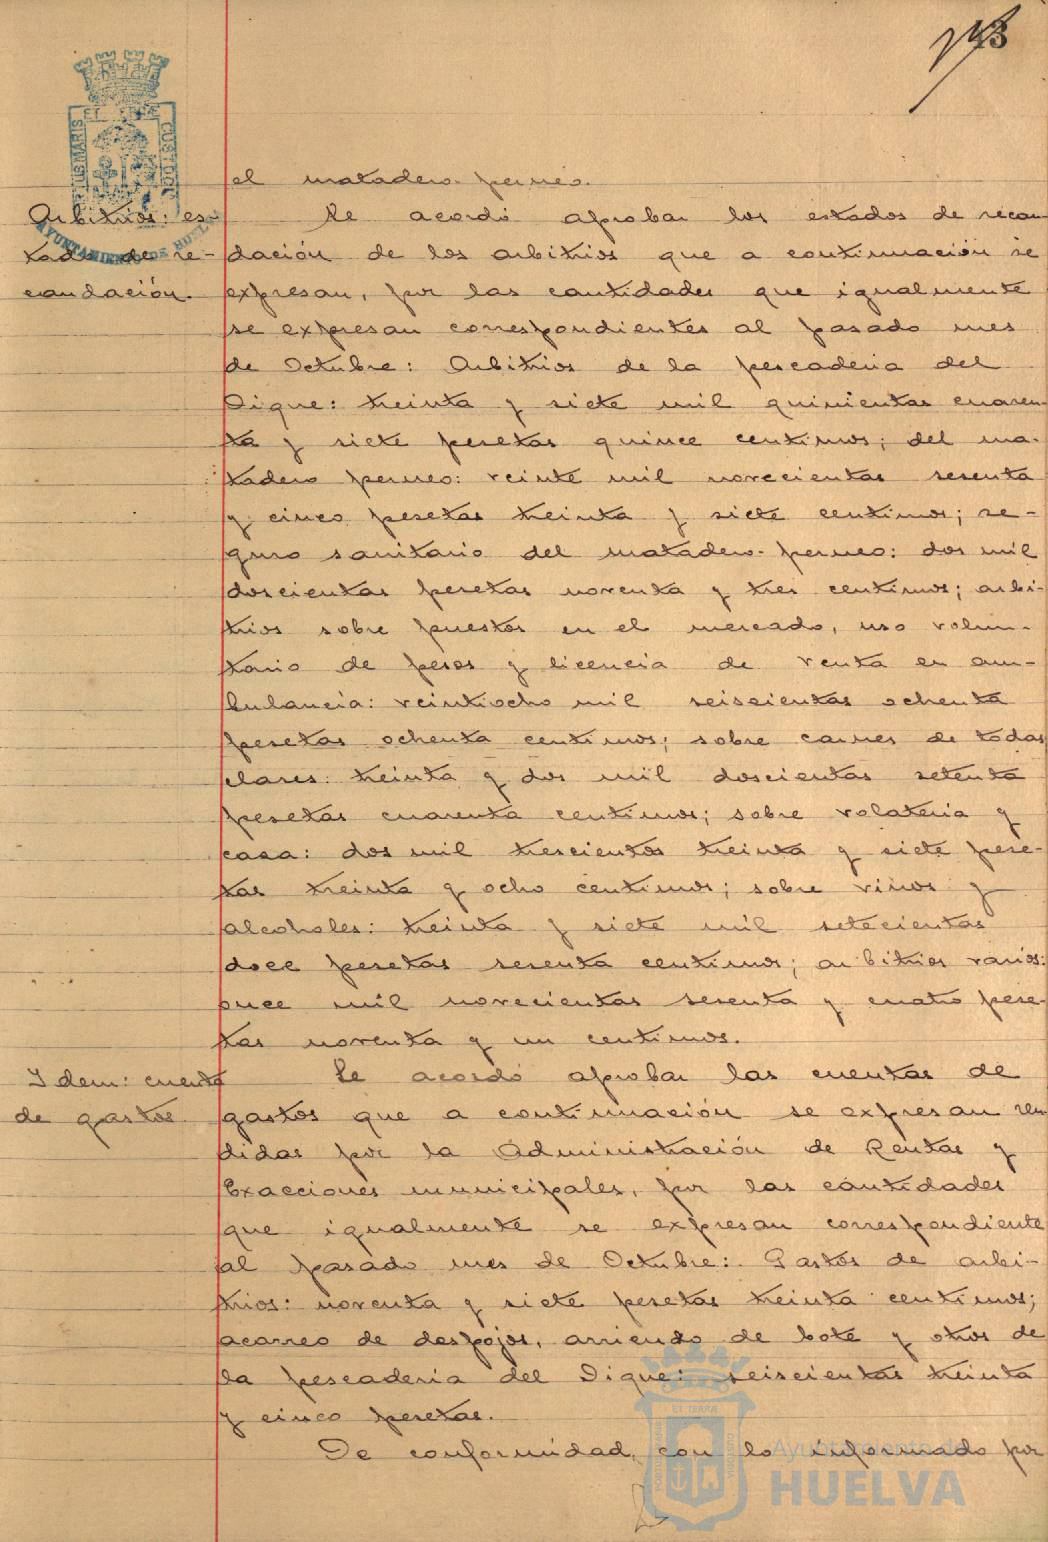 43
el matadero perneo.
Arbitrios: es-
tado de re-
caudación.
Se acordó aprobar los estados de recau-
dación de los arbitrios que a continuación se
expresan, por las cantidades que igualmente
se expresan correspondientes al pasado mes
de Octubre: Arbitrios de la pescaderia del
Dique: treinta y siete mil quinientas cuaren-
ta y siete pesetas quince centimos; del ma-
tadero perneo: veinte mil novecientas sesenta
y cinco pesetas treinta y siete centimos; se-
guro sanitario del matadero perneo: dos mil
doscientas pesetas noventa y tres centimos; arbi-
trios sobre puestos en el mercado, uso volun-
tario de pesos y licencia de venta en am-
bulancia: veintiocho mil seiscientas ochenta
pesetas ochenta centimos; sobre carnes de todas
clases: treinta y dos mil doscientas setenta
pesetas cuarenta centimos; sobre volateria y
casa: dos mil trescientas treinta y siete pese-
tas treinta y ocho centimos; sobre vinos y
alcoholes: treinta y siete mil setecientas
doce pesetas sesenta centimos; arbitrios varios:
once mil novecientas sesenta y cuatro pese-
tas noventa y un centimos.
Idem: cuenta
de gastos
Se acordó aprobar las cuentas de
gastos que a continuación se expresan ren-
didas por la Administración de Rentas y
Exacciones municipales, por las cantidades
que igualmente se expresan correspondiente
al pasado mes de Octubre: Gastos de arbi-
trios: noventa y siete pesetas treinta centimos;
acarreo de despojos, arriendo de bote y otros de
la pescaderia del Dique: seiscientas treinta
y cinco pesetas.
De conformidad, con lo informado por
AYUNTAMIENTO DE HUELVA
Ayuntamiento de
HUELVA